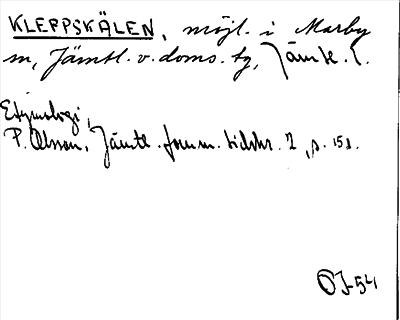 KLEPPSKÄLEN, möjl. i Marby
sn, Jämtl. v. doms. tg, Jämtl. l.
Etymologi,
P. Olsson, Jämtl. fornm. tidskr. 2, s. 151.
OJ-54